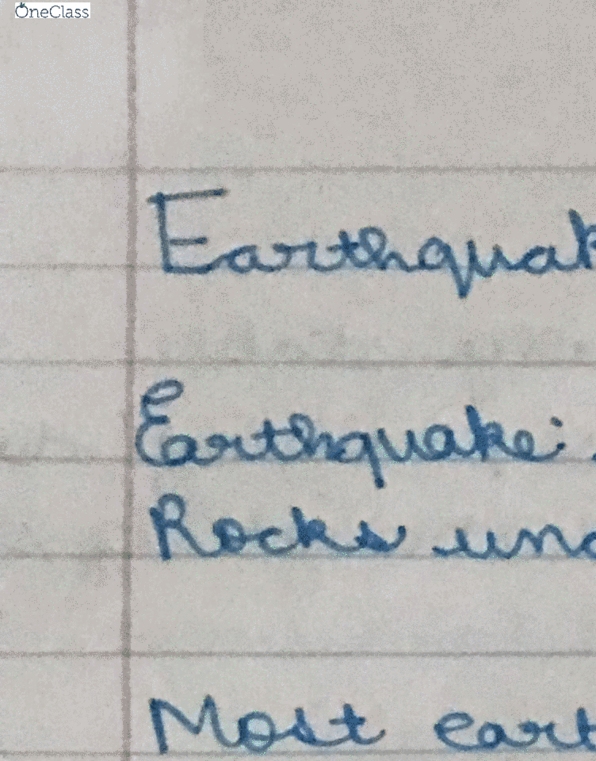 OneClass
Earthquak
Earthquake:
Rocks
Most eart